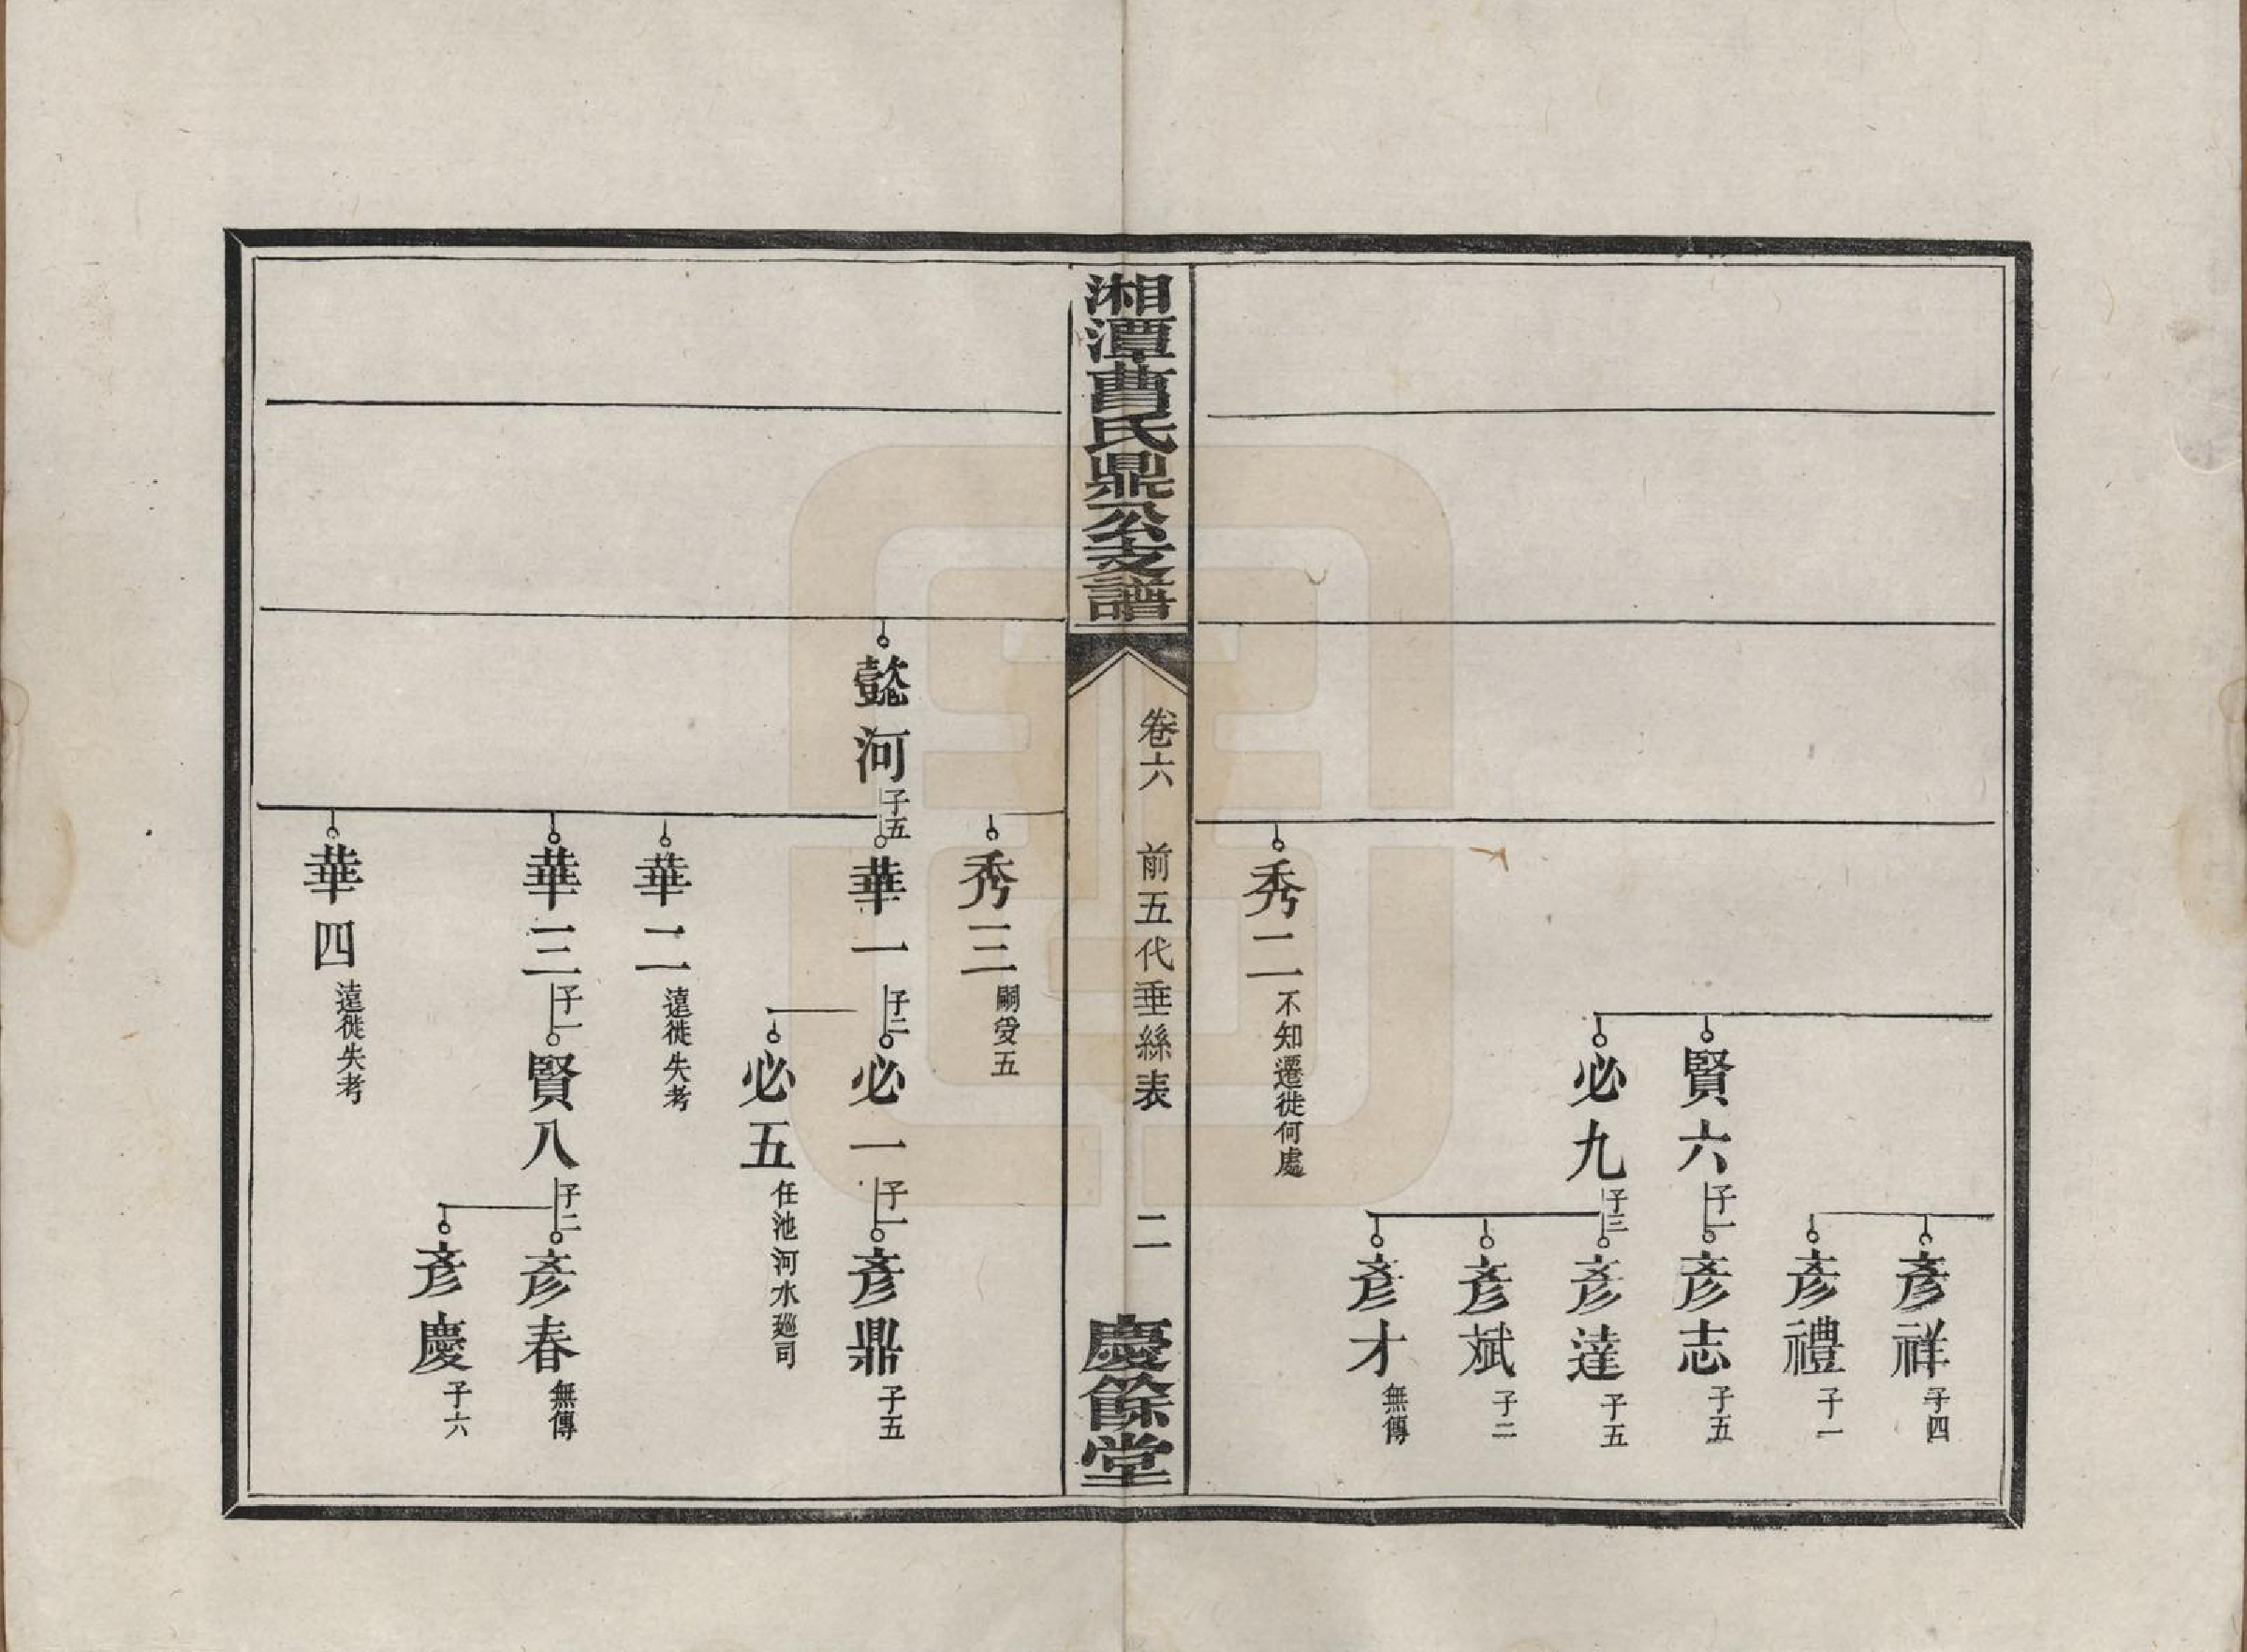 彥祥子四
彥禮子一
賢六子一
彥志子五
必九子三
彥達子五
彥斌子二
彥才無傳
秀二不知遷徙何處
湘潭曹氏鼎公支譜
卷六 前五代垂絲表 二
慶餘堂
秀三嗣受五
懿河子五
華一子二
必一子一
彥鼎子五
必五任池河水廵司
華二遠徙失考
華三子一
賢八子二
彥春無傳
彥慶子六
華四遠徙失考